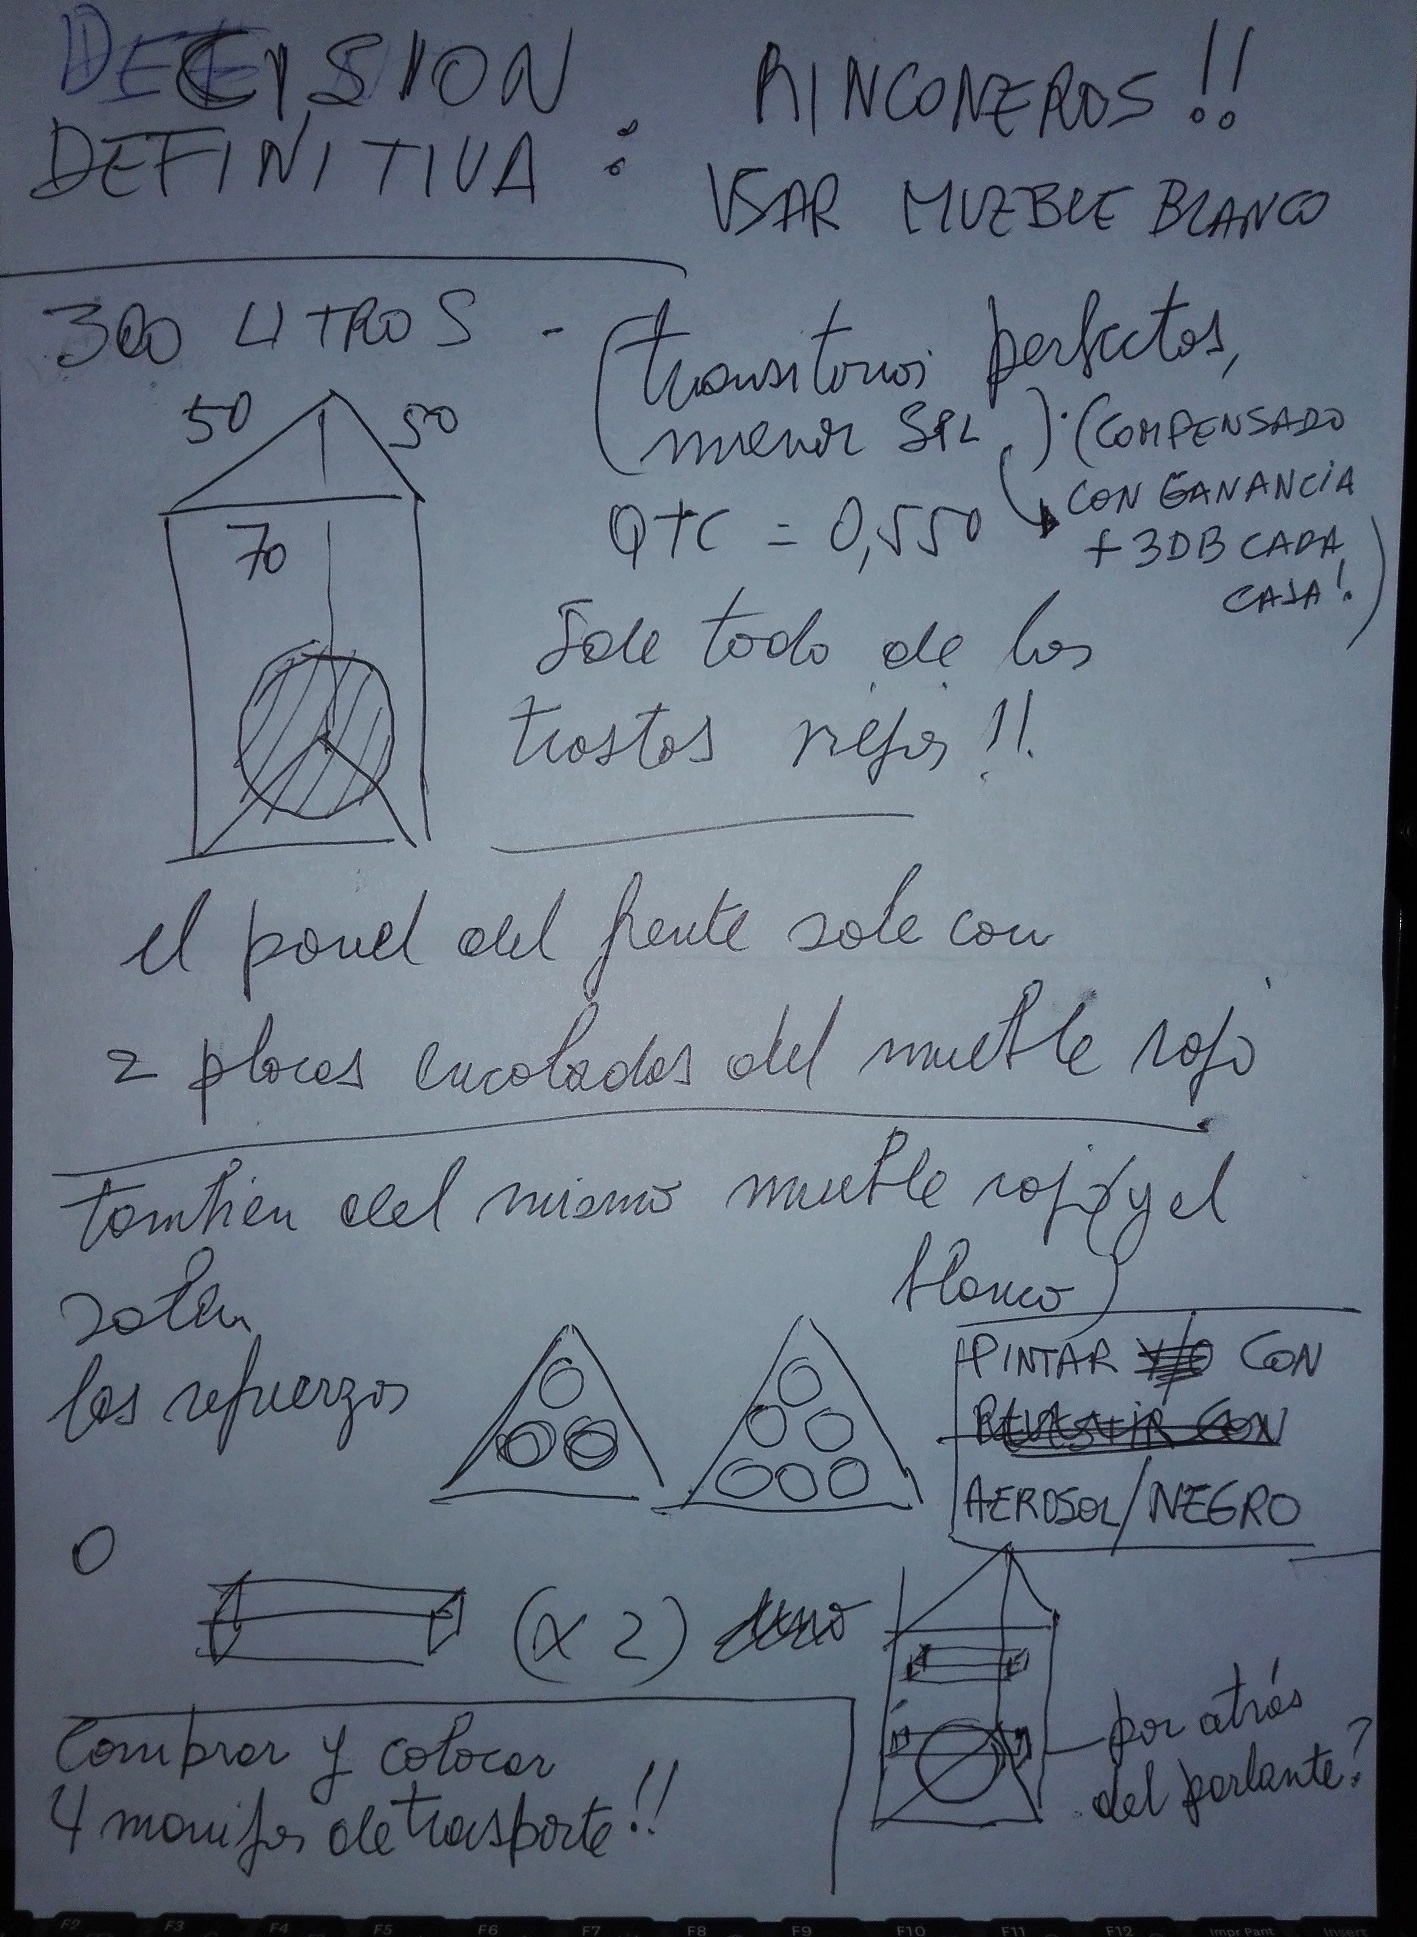 DECISION
DEFINITIVA :
RINCONEROS!!
USAR MUEBLE BLANCO
300 LITROS -
(transitorios perfectos,
menor SPL,)·(COMPENSADO
CON GANANCIA
+3DB CADA
CAJA!)
50
50
70
QTC = 0,550
Sale todo de los
trastos viejos!!
el panel del frente sale con
2 placas encoladas del mueble rojo
también del mismo mueble rojo (y el
blanco)
salen
los refuerzos
PINTAR CON
AEROSOL/NEGRO
O
(x 2)
por atrás
del parlante?
Comprar y colocar
4 manijas de trasporte!!
F2 F3 F4 F5 F6 F7 F8 F9 F10 F11 F12 Impr Pant Insert